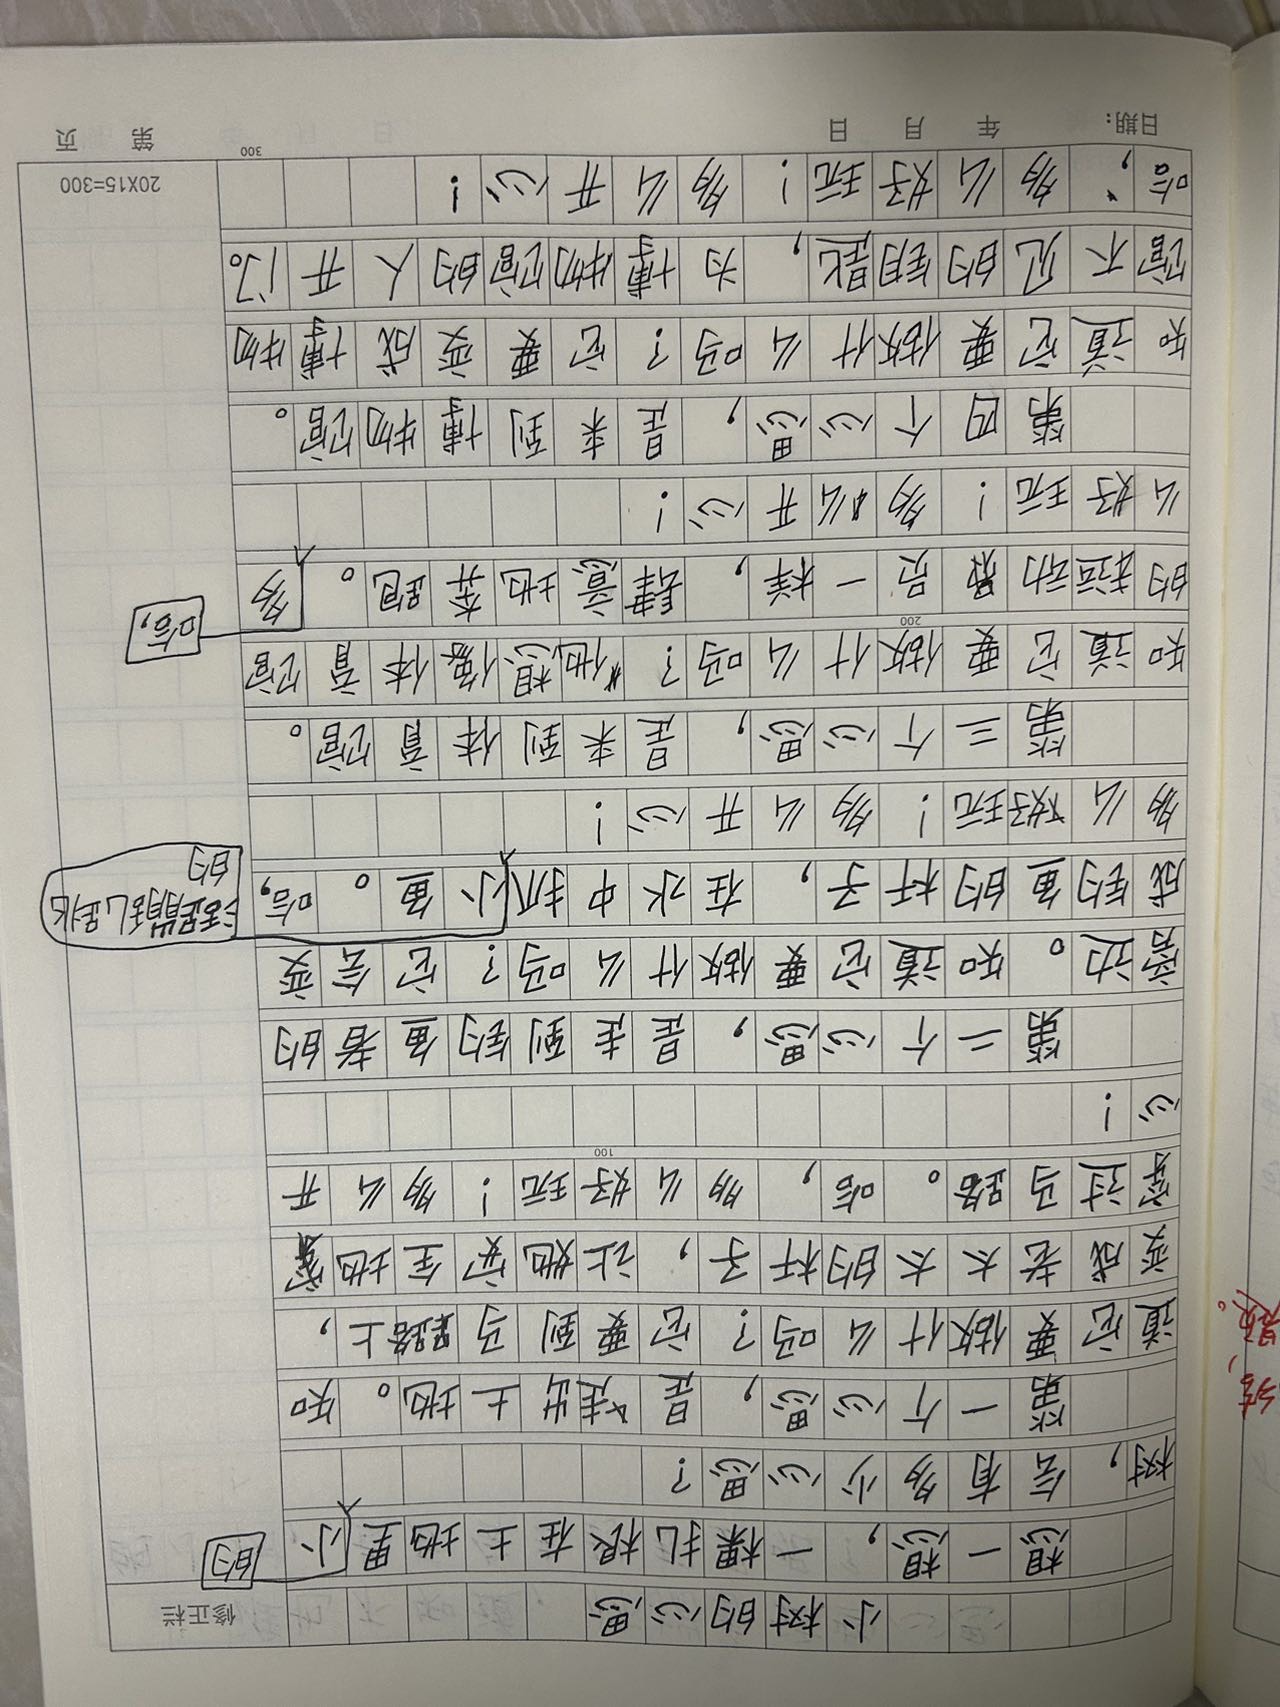 修正栏
小树的心思
想一想，一棵扎根在土地里的小
树，会有多少心思？
第一个心思，是走出土地。知
道它要做什么吗？它要到马路上，
变成老太太的杆子，让她安全地
穿过马路。哈，多么好玩！多么开
心！
第二个心思，是走到钓鱼者的
旁边。知道它要做什么吗？它会变
成钓鱼的杆子，在水中抓活蹦乱跳的小鱼。哈，
多么好玩！多么开心！
第三个心思，是来到体育馆。
知道它要做什么吗？他想像体育馆
的运动员一样，肆意地奔跑。哈，多
么好玩！多么开心！
第四个心思，是来到博物馆。
知道它要做什么吗？它要变成博物
馆不见的钥匙，为博物馆的人开门。
哈，多么好玩！多么开心！
100
200
300
20X15=300
日期： 年 月 日 第 页